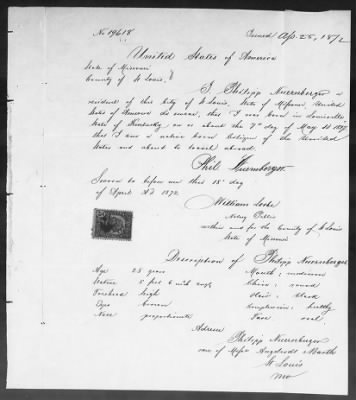 No 19618
Issued Ap. 25, 1872
United States of America
State of Missouri
County of St Louis.
I Philipp Nuernberger a
resident of this City of St Louis, State of Missouri, United
States of America do swear, that I was born in Louisville
State of Kentucky on or about the 7th day of May
that I am a native born Citizen of the United
States and about to travel abroad.
Phil. Nuernberger
Sworn to before me this 18th day
of April AD 1872.
William Locke
Notary Public
within and for the County of St Louis
State of Missouri
Description of Philipp Nuernberger
Age 25 years
Mouth: medium
Stature 5 feet 6 inch
Chin: round
Forehead high
Hair: black
Eyes brown
Complexion: healthy
Nose proportionate
Face oval
Address
Philipp Nuernberger
care of Messrs Angelrodt & Barth
St Louis
Mo